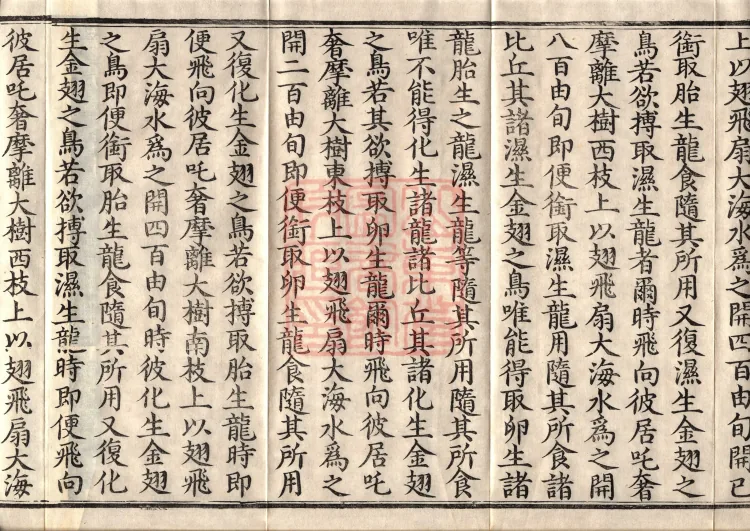 上以翅飛扇大海水爲之開四百由旬開已
銜取胎生龍食隨其所用又復濕生金翅之
鳥若欲搏取濕生龍者爾時飛向彼居吒奢
摩離大樹西枝上以翅飛扇大海水爲之開
八百由旬即便銜取濕生龍用隨其所食諸
比丘其諸濕生金翅之鳥唯能得取卵生諸
龍胎生之龍濕生龍等隨其所用隨其所食
唯不能得化生諸龍諸比丘其諸化生金翅
之鳥若其欲搏取卵生龍爾時飛向彼居吒
奢摩離大樹東枝上以翅飛扇大海水爲之
開二百由旬即便銜取卵生龍食隨其所用
又復化生金翅之鳥若欲搏取胎生龍時即
便飛向彼居吒奢摩離大樹南枝上以翅飛
扇大海水爲之開四百由旬時彼化生金翅
之鳥即便銜取胎生龍食隨其所用又復化
生金翅之鳥若欲搏取濕生龍時即便飛向
彼居吒奢摩離大樹西枝上以翅飛扇大海